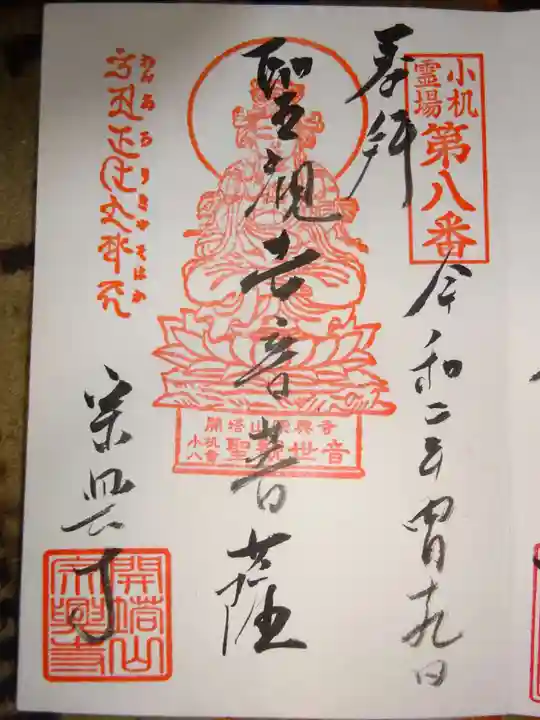 小机
霊場
第八番
奉拝
令和二年
聖観世音菩薩
開塔山宗興寺
小机
八番
聖観世音
おん あろりきや そはか
宗興寺
開塔山
宗興寺